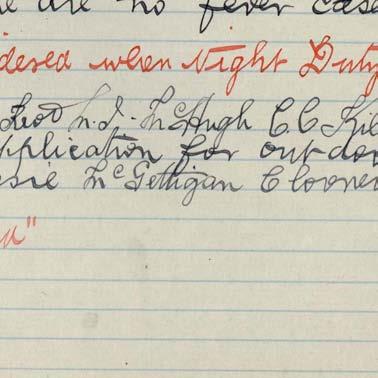 are no fever case
dered when Night Duty
N. J. McHugh C.C Kil
pplication for outdoo
ssie McGettigan Clooney
"